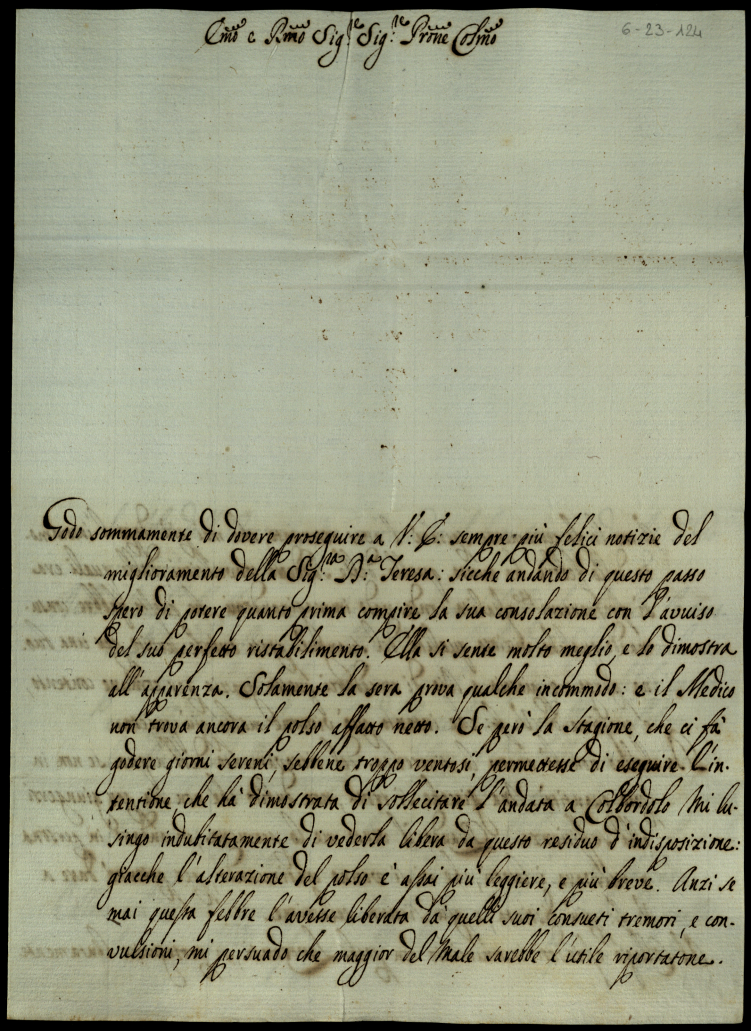 Emo e Rmo Sig.re Sig.re Prone Colmo
6-23-124
Godo sommamente di dovere proseguire a V: E: sempre più felici notizie del
miglioramento della Sig:ra D:a Teresa: sicchè andando di questo passo
spero di potere quanto prima compire la sua consolazione con l'avviso
del suo perfetto ristabilimento. Ella si sente molto meglio, e lo dimostra
all'apparenza. Solamente la sera prova qualche incommodo: e il Medico
non trova ancora il polso affatto netto. Se però la Stagione, che ci fà
godere giorni sereni, sebbene troppo ventosi, permettesse di eseguire l'in-
tentione, che hà dimostrata di sollecitare l'andata a Colbordolo Mi lu-
singo indubitatamente di vederla libera da questo residuo d'indisposizione:
giacche l'alterazione del polso è assai più leggiere, e più breve. Anzi se
mai questa febbre l'avesse liberata dà quelli suoi consueti tremori, e con-
vulsioni, mi persuado che maggior del Male sarebbe l'utile riportatone.